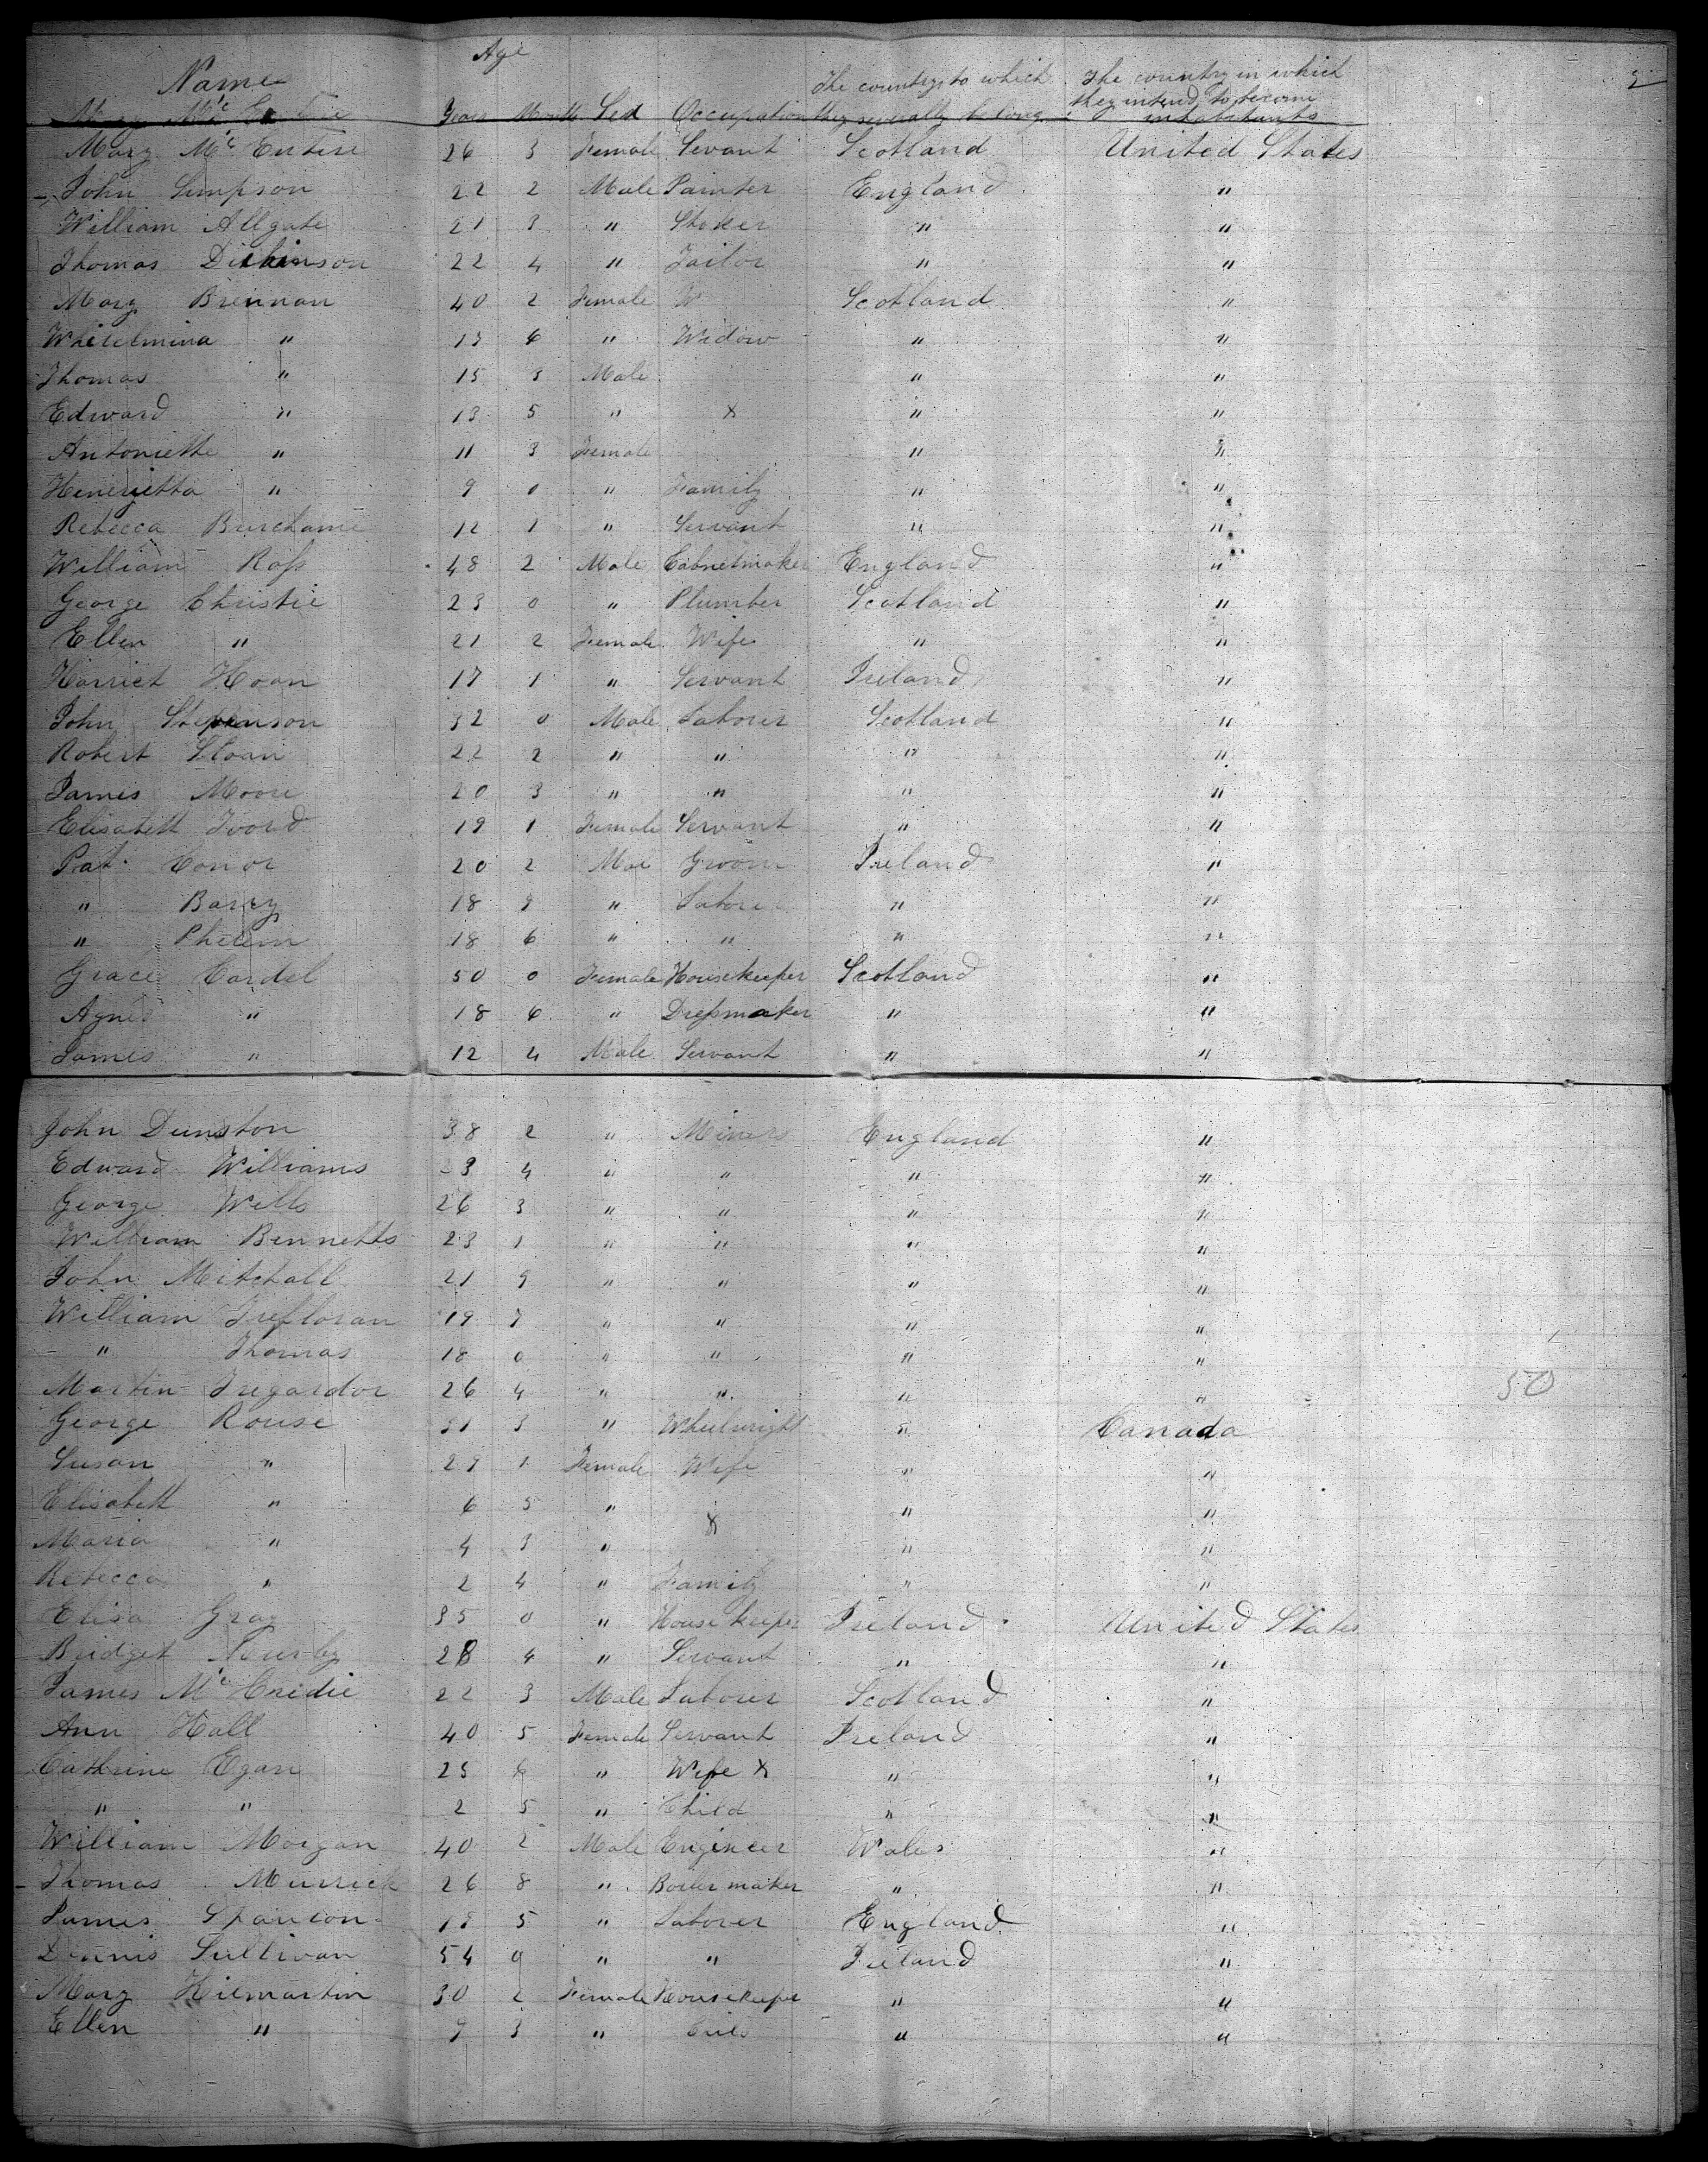 2
Age
Name
The country to which they severally belong
The country in which they intend to become inhabitants
Years Months Sex Occupation
Mary Mc Entire 26 3 Female Servant Scotland United States
John Simpson 22 2 Male Painter England "
William Allgate 21 3 " Stoker " "
Thomas Dickinson 22 4 " Tailor " "
Mary Brennan 40 2 Female W Scotland "
Whilelmina " 17 6 " Widow " "
Thomas " 15 3 Male " "
Edward " 13 5 " x " "
Antoniette " 11 3 Female " "
Henerietta " 9 0 " Family " "
Rebecca 12 1 " Servant " "
William Ross 48 2 Male Cabnetmaker England "
George Christie 23 0 " Plumber Scotland "
Ellen " 21 2 Female Wife " "
Harriet Hoan 17 1 " Servant Ireland "
John Stepenson 32 0 Male Laborer Scotland "
Robert Sloan 22 2 " " " "
James Moore 20 3 " " " "
Elisabett 19 1 Female Servant " "
Pat Conor 20 2 Mae Groom Ireland "
" Barry 18 9 " Laborer " "
" Phelim 18 6 " " " "
Grace Cardel 50 0 Female Housekeeper Scotland "
Agnes " 18 6 " Dressmaker " "
James " 12 4 Male Servant " "
John Dunston 38 2 " Miners England "
Edward Williams 4 " " " "
George Wells 26 3 " " " "
William Bennetts 23 1 " " " "
John Mitchall 21 9 " " " "
William 19 7 " " " "
" Thomas 18 0 " " " "
Martin Tregardor 26 4 " " " "
50
George Rouse 31 3 " Wheelwright " Canada
Susan " 29 1 Female Wife " "
Elisabett " 6 5 " " "
Maria " 4 3 " x " "
Rebecca " 2 4 " Family " "
Elisa Gray 35 0 " House keeper Ireland United States
Bridget 28 4 " Servant " "
James Mc Credie 22 3 Male Laborer Scotland "
Ann Hall 40 5 Female Servant Ireland "
Cathrine Egan 25 6 " Wife x " "
" " 2 5 " Child " "
William Morgan 40 2 Male Engineer Wales "
Thomas Mirrick 26 8 " Boilermaker " "
James 18 5 " Laborer England "
Dennis Sullivan 54 9 " " Ireland "
Mary Kilmartin 30 2 Female Housekeeper " "
Ellen " 9 3 " " "